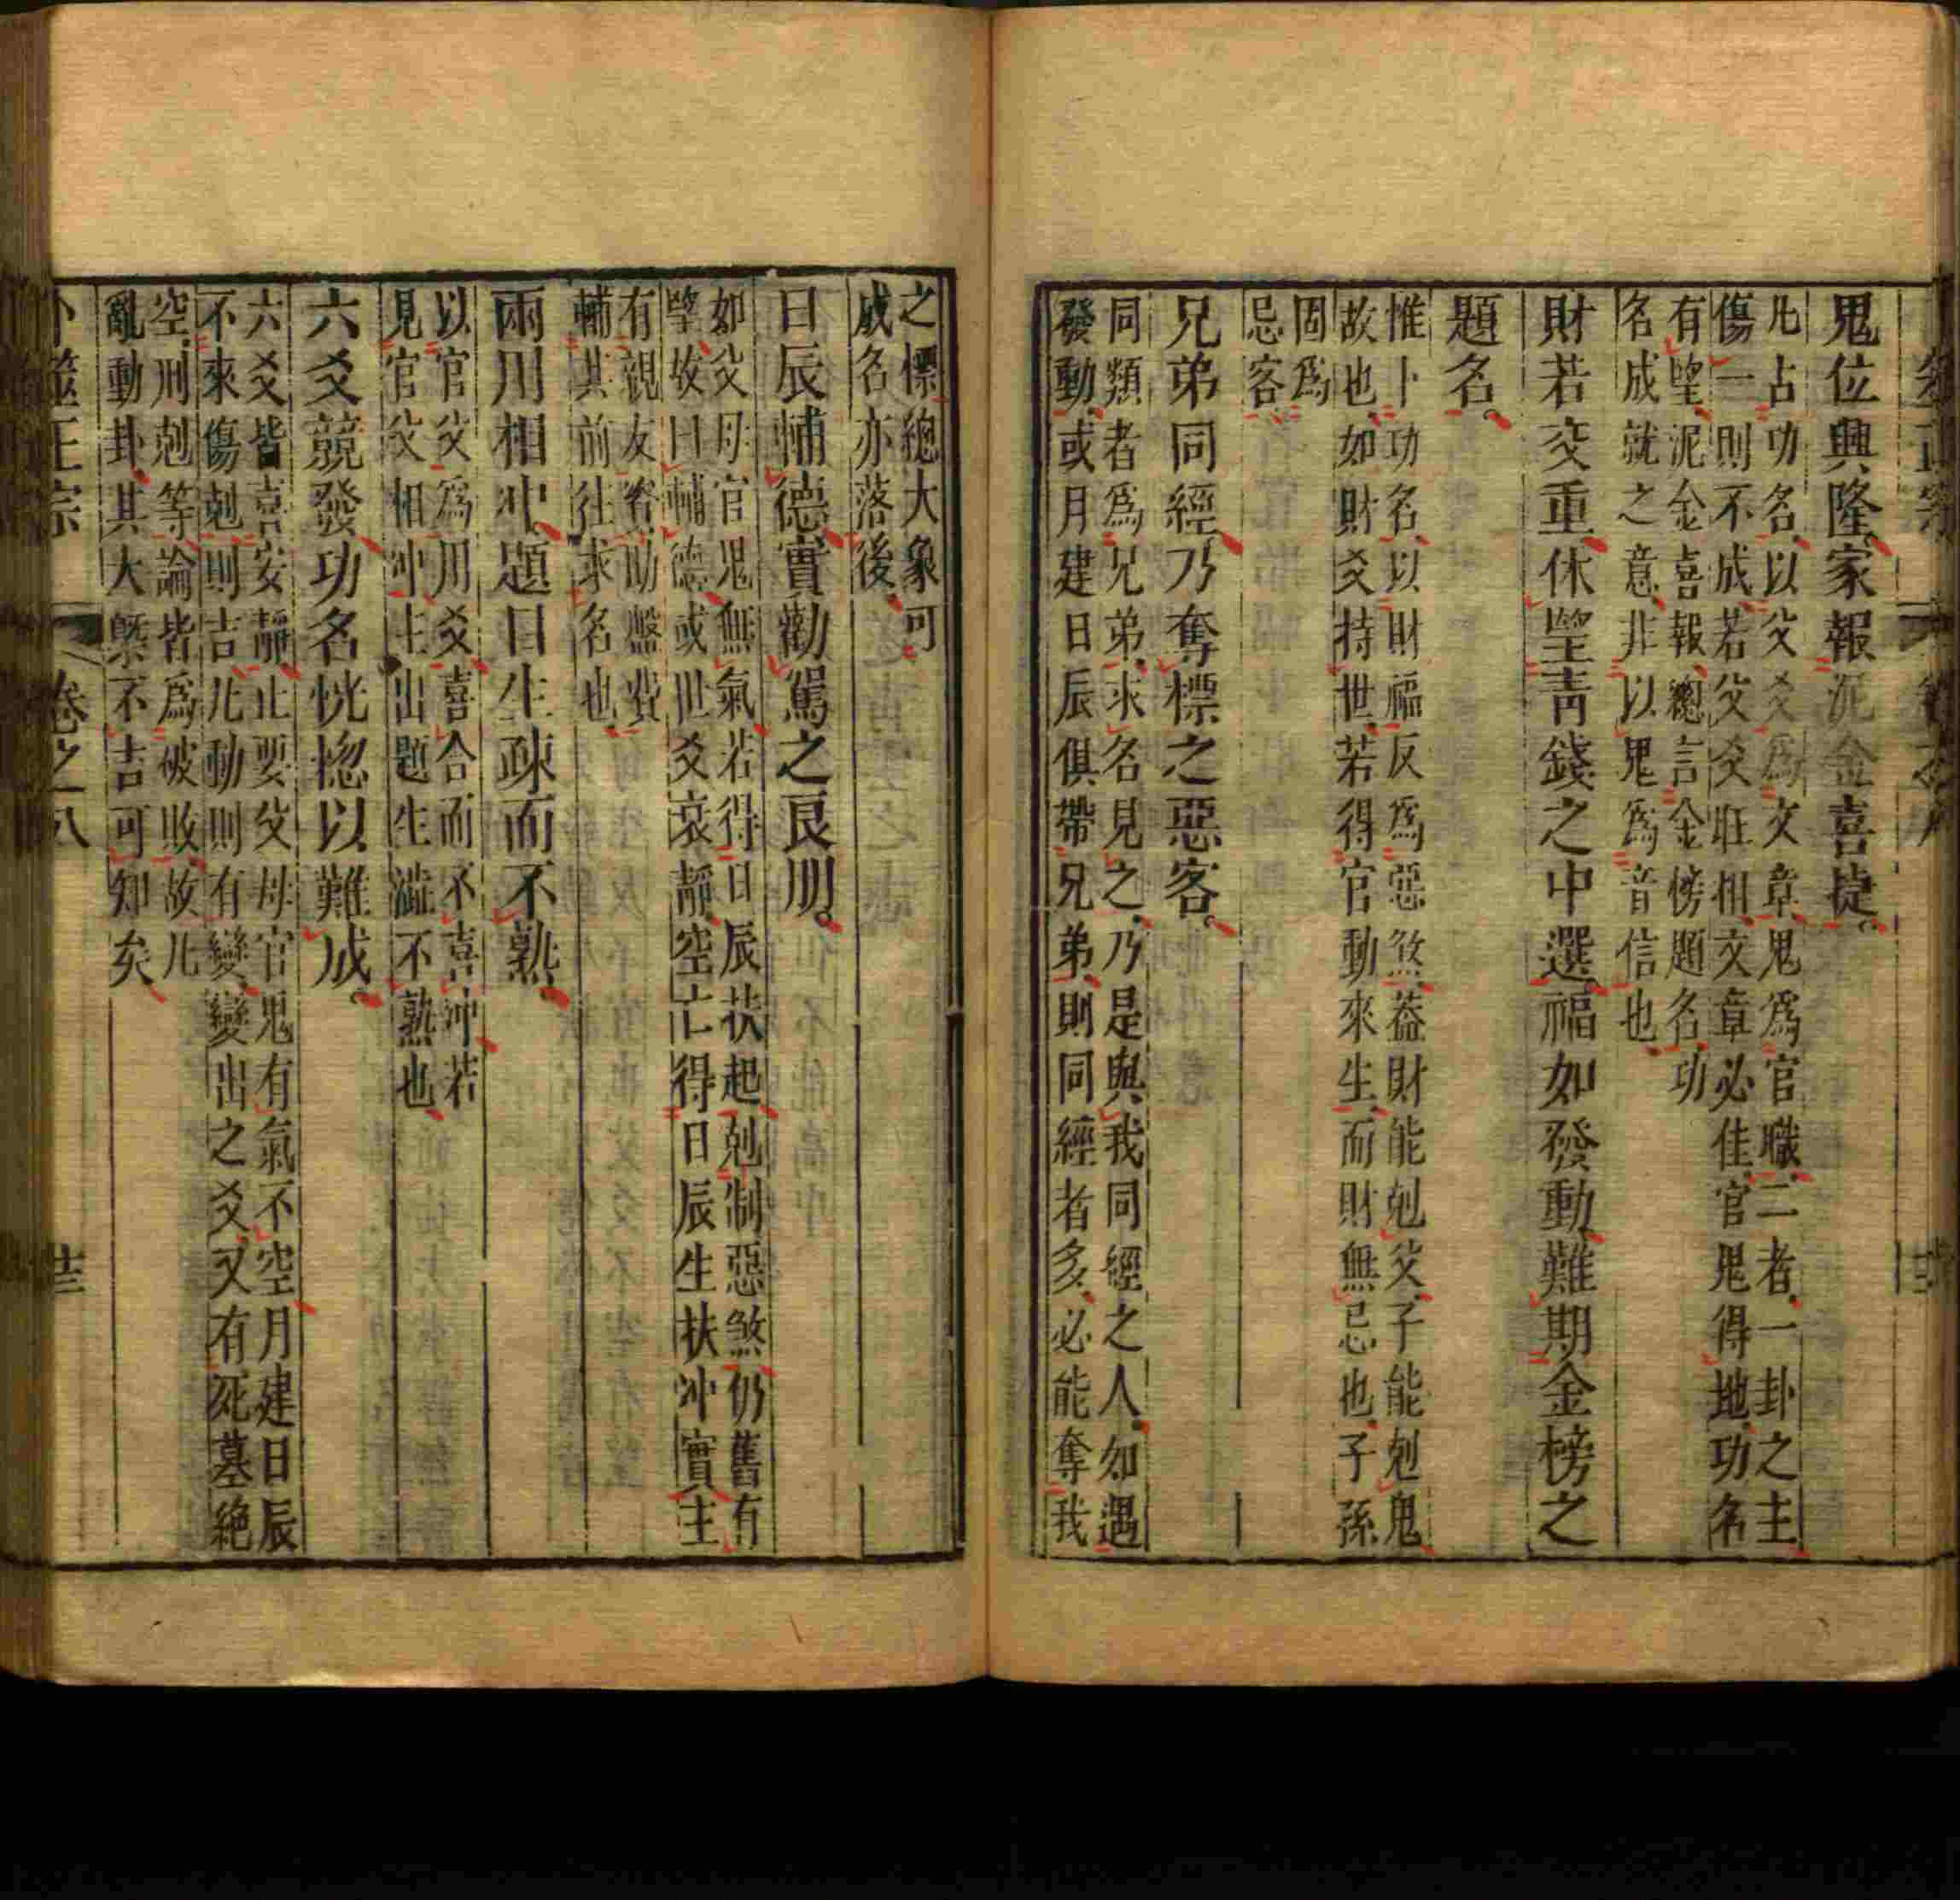 鬼位興隆家報泥金喜捷
凢占功名以父爻爲文章鬼爲官職二者一卦之主
傷一則不成若父爻旺相文章必佳官鬼得地功名
有望泥金喜報總言金榜題名功
名成就之意非以鬼爲音信也
財若交重休望青錢之中選福如發動難期金榜之
題名
惟卜功名以財福反爲惡煞葢財能剋父子能剋鬼
故也如財爻持世若得官動來生而財無忌也子孫
固爲
忌客
兄弟同經乃奪標之惡客
同類者爲兄弟求名見之乃是與我同經之人如遇
發動或月建日辰俱帶兄弟則同經者多必能奪我
之標總大象可
成名亦落後
日辰輔德實勸駕之良朋
如父母官鬼無氣若得日辰扶起剋制惡煞仍舊有
望故曰輔德或世爻衰靜空亡得日辰生扶冲實主
有親友資助盤費
輔其前往求名也
兩用相冲題目生疎而不熟
以官父爲用爻喜合而不喜冲若
見官父相冲主出題生澁不熟也
六爻競發功名恍惚以難成
六爻皆喜安靜止要父母官鬼有氣不空月建日辰
不來傷剋則吉凢動則有變變出之爻又有死墓絕
空刑剋等論皆爲破敗故凢
亂動卦其大槩不吉可知矣
卜筮正宗 卷之八 廿三